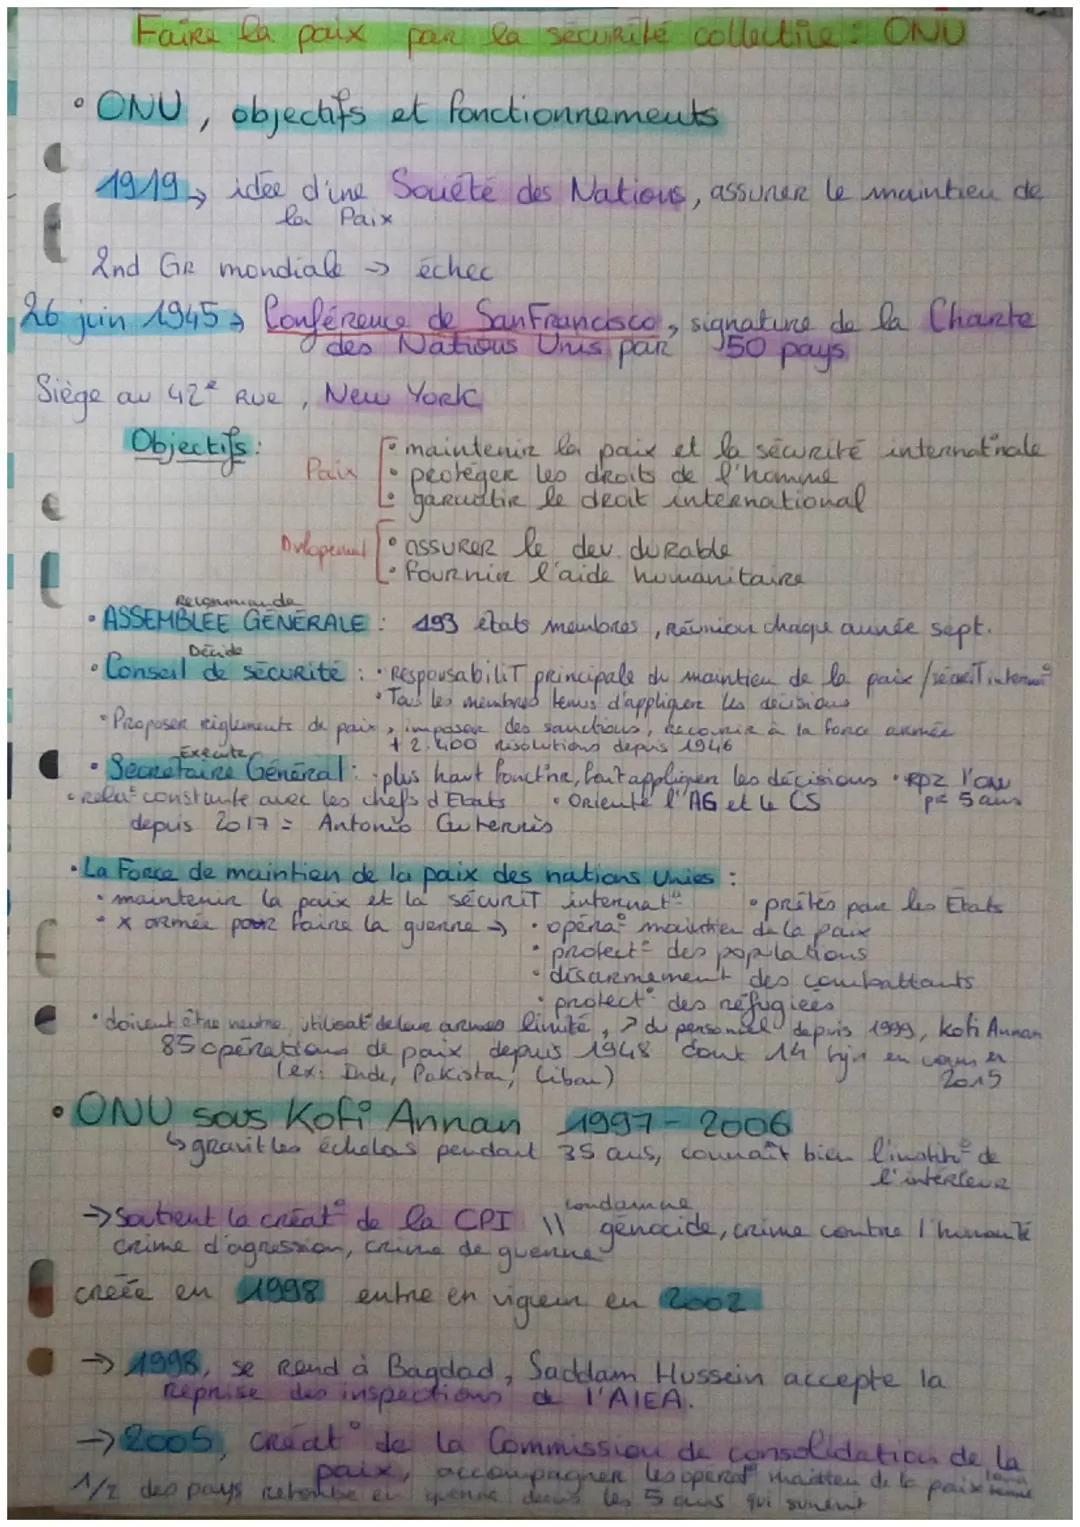 Faire la paix par la sécurité collective : ONU
• ONU, objectifs et fonctionnements
1919 → idée d'une Société des Nations, assurer le maintien de
la Paix
2nd GR mondiale → échec
26 juin 1945 → Conférence de San Francisco, signature de la Charte
des Nations Unis par 50 pays
Siège au 42e Rue, New York
Objectifs :
Paix
• maintenir la paix et la sécurité internat°nale
• protéger les droits de l'homme
• garantir le droit international
Dvlopement
• assurer le dev. durable
• fournir l'aide humanitaire
Recommande
• ASSEMBLÉE GÉNÉRALE : 193 états membres, réunion chaque année sept.
Décide
• Conseil de sécurité : • ResponsabiliT principale du maintien de la paix /sécuriT internat°
• Tous les membres tenus d'appliquer les décisions
• Proposer règlements de paix, imposer des sanctions, recourir à la force armée
+ 2.400 résolutions depuis 1946
Exécute
• Secrétaire Général : • plus haut fonct°nr, fait appliquer les décisions • rpz l'ONU
• rela° constante avec les chefs d'Etats • Oriente l'AG et le CS
5 ans
depuis 2017 = Antonio Guterres
• La Force de maintien de la paix des nations Unies :
• maintenir la paix et la sécuriT internat° • prêtés par les Etats
• x armée pour faire la guerre → • opéra° maintien de la paix
• protect° des populations
• désarmement des combattants
• protect° des réfugiées
• doivent être neutre, utilisat° de leur armes limité, ↗ du personnel depuis 1999, Kofi Annan
85 opérations de paix depuis 1948 dont 14 tjr en cours en
2015
(ex: Inde, Pakistan, Liban)
• ONU sous Kofi Annan 1997 - 2006
↳ gravit les échelons pendant 35 ans, connaît bien l'institut° de
l'intérieur
→ Soutient la créat° de la CPI \\ condamne génocide, crime contre l'humanité
crime d'agression, crime de guerre
créée en 1998 entre en vigueur en 2002
→ 1998, se rend à Bagdad, Saddam Hussein accepte la
reprise des inspections de l'AIEA.
→ 2005, créat° de la Commission de consolidation de la
paix, accompagner les opérat° maintien de la paix long terme
1/2 des pays retombe en guerre dans les 5 ans qui suivent